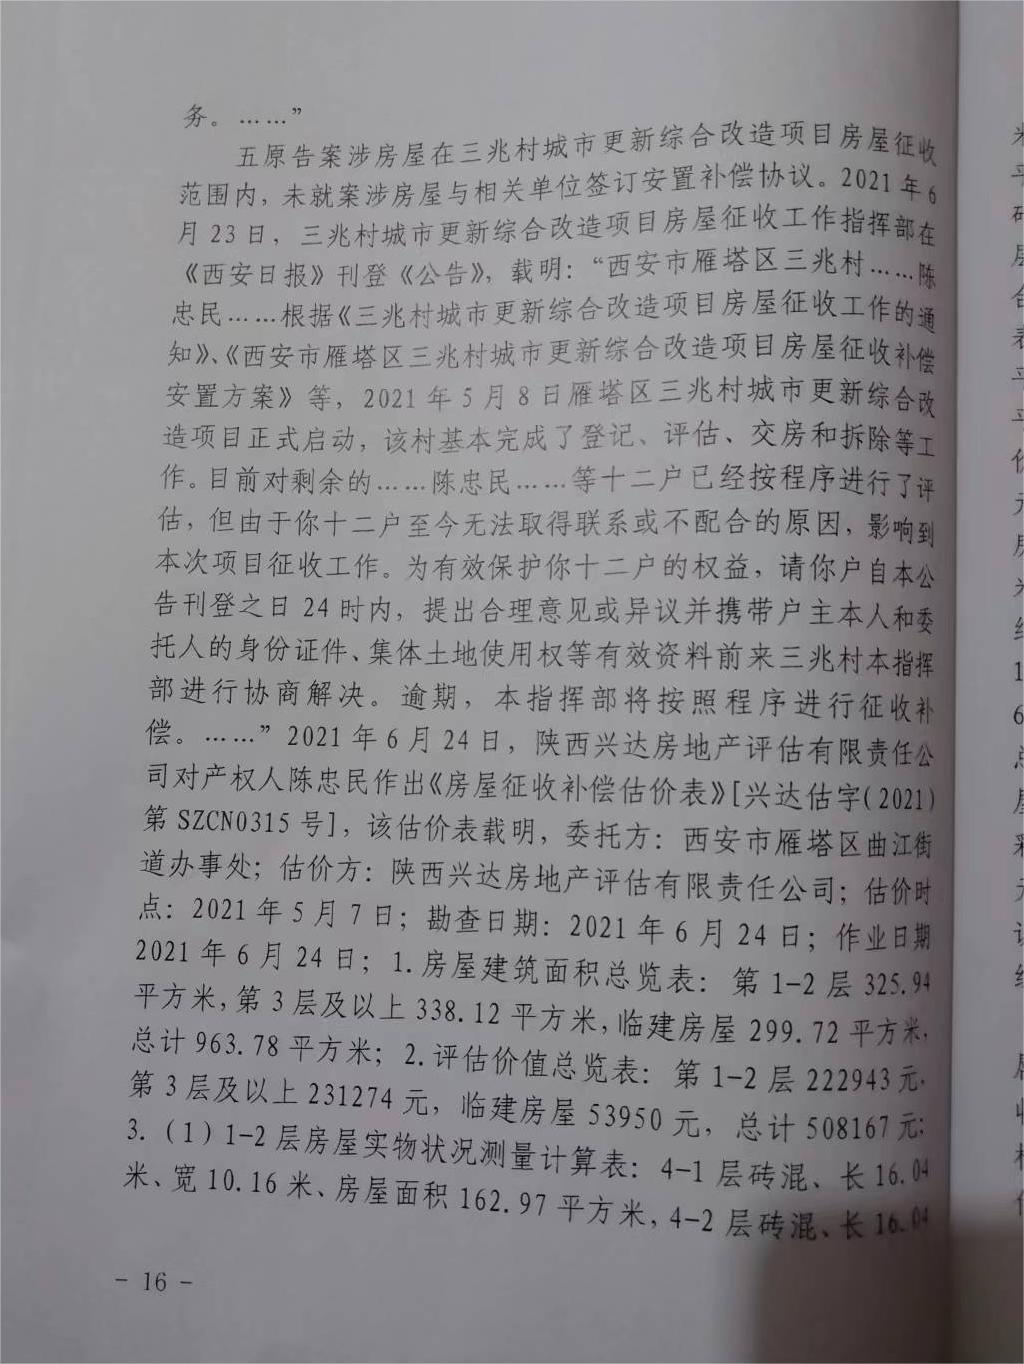 务。……”
五原告案涉房屋在三兆村城市更新综合改造项目房屋征收
范围内，未就案涉房屋与相关单位签订安置补偿协议。2021年6
月23日，三兆村城市更新综合改造项目房屋征收工作指挥部在
《西安日报》刊登《公告》，载明：“西安市雁塔区三兆村……陈
忠民……根据《三兆村城市更新综合改造项目房屋征收工作的通
知》、《西安市雁塔区三兆村城市更新综合改造项目房屋征收补偿
安置方案》等，2021年5月8日雁塔区三兆村城市更新综合改
造项目正式启动，该村基本完成了登记、评估、交房和拆除等工
作。目前对剩余的……陈忠民……等十二户已经按程序进行了评
估，但由于你十二户至今无法取得联系或不配合的原因，影响到
本次项目征收工作。为有效保护你十二户的权益，请你户自本公
告刊登之日24时内，提出合理意见或异议并携带户主本人和委
托人的身份证件、集体土地使用权等有效资料前来三兆村本指挥
部进行协商解决。逾期，本指挥部将按照程序进行征收补
偿。……”2021年6月24日，陕西兴达房地产评估有限责任公
司对产权人陈忠民作出《房屋征收补偿估价表》[兴达估字(2021)
第SZCN0315号]，该估价表载明，委托方：西安市雁塔区曲江街
道办事处；估价方：陕西兴达房地产评估有限责任公司；估价时
点：2021年5月7日；勘查日期：2021年6月24日；作业日期
2021年6月24日；1.房屋建筑面积总览表：第1-2层325.94
平方米，第3层及以上338.12平方米，临建房屋299.72平方米，
总计963.78平方米；2.评估价值总览表：第1-2层222943元，
第3层及以上231274元，临建房屋53950元，总计508167元；
3.（1）1-2层房屋实物状况测量计算表：4-1层砖混、长16.04
米、宽10.16米、房屋面积162.97平方米，4-2层砖混、长16.04
- 16 -